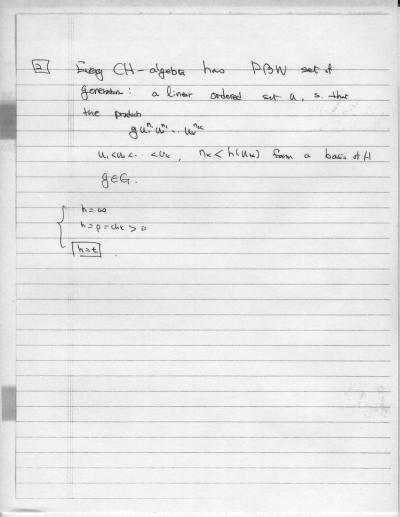 2 Every CH-algebra has PBW set of
generators: a linear ordered set U, s. that
the products
g u₁^n₁ u₂^n₂ ... uₖ^nₖ
u₁<u₂<...<uₖ, nₖ < h(uₖ) form a basis of H
g∈G.
h=∞
h=p=chk > 0
h=t